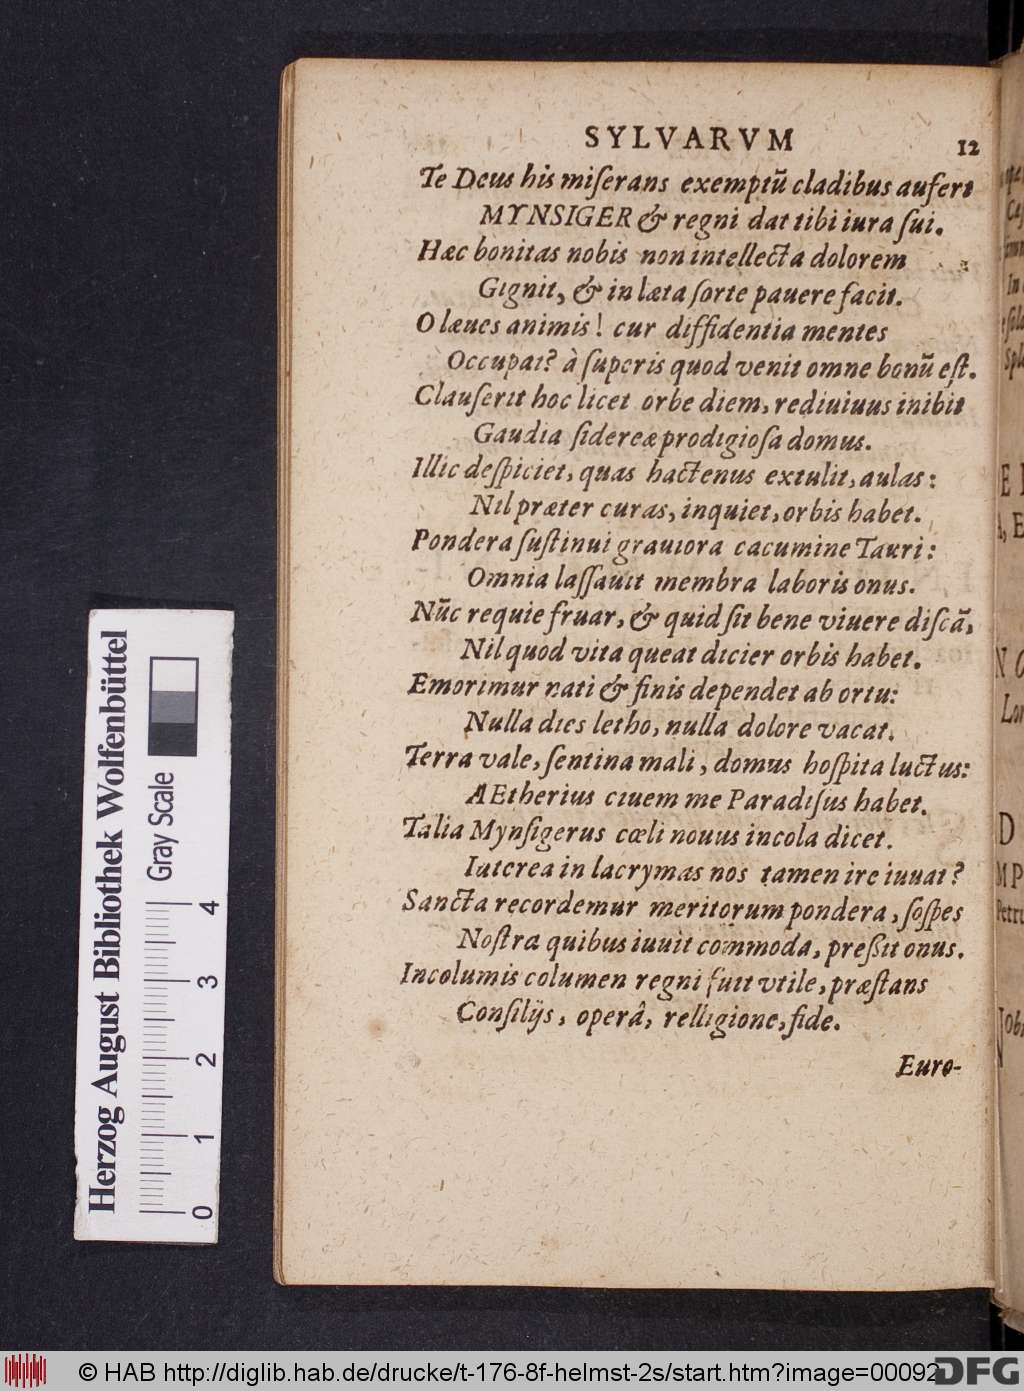 SYLVARVM 12
Te Deus his miserans exemptū cladibus aufert
MYNSIGER & regni dat tibi iura sui.
Hæc bonitas nobis non intellecta dolorem
Gignit, & in læta sorte pauere facit.
O læues animis! cur diffidentia mentes
Occupat? à superis quod venit omne bonū est.
Clauserit hoc licet orbe diem, rediuiuus inibit
Gaudia sidereæ prodigiosa domus.
Illic despiciet, quas hactenus extulit, aulas:
Nil præter curas, inquiet, orbis habet.
Pondera sustinui grauiora cacumine Tauri:
Omnia lassauit membra laboris onus.
Nūc requie fruar, & quid sit bene viuere discā,
Nil quod vita queat dicier orbis habet.
Emorimur nati & finis dependet ab ortu:
Nulla dies letho, nulla dolore vacat.
Terra vale, sentina mali, domus hospita luctus:
AEtherius ciuem me Paradisus habet.
Talia Mynsigerus cœli nouus incola dicet.
Iatcrea in lacrymas nos tamen ire iuuat?
Sancta recordemur meritorum pondera, sospes
Nostra quibus iuuit commoda, preßit onus.
Incolumis columen regni fuit vtile, præstans
Consilijs, operâ, relligione, fide.
Euro-
Herzog August Bibliothek Wolfenbüttel
Gray Scale
0 1 2 3 4
© HAB http://diglib.hab.de/drucke/t-176-8f-helmst-2s/start.htm?image=00092
DFG